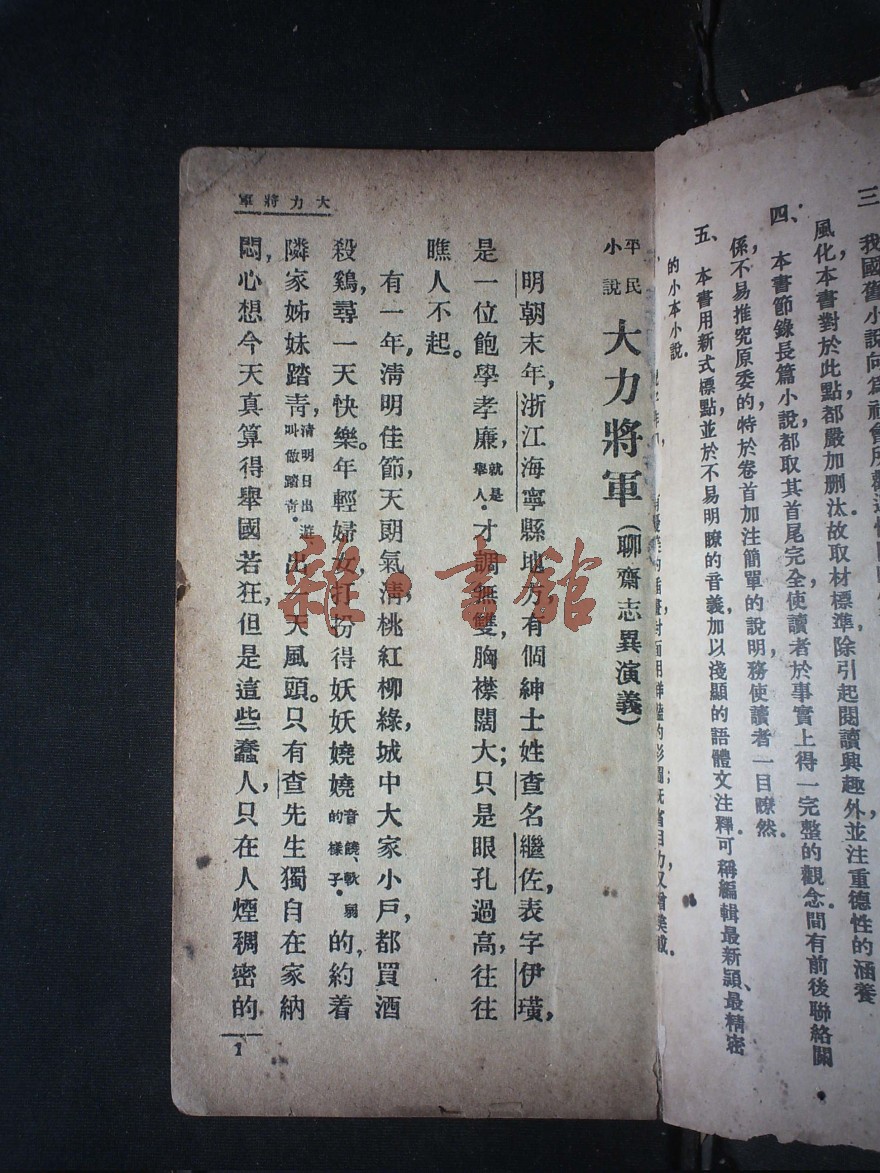 三　我國舊小說向爲社會所
風化本書對於此點都嚴加删汰故取材標準除引起閱讀興趣外並注重德性的涵養
四、本書節錄長篇小說都取其首尾完全使讀者於事實上得一完整的觀念間有前後聯絡關
係，不易推究原委的特於卷首加注簡單的說明務使讀者一目瞭然．
五、本書用新式標點並於不易明瞭的音義加以淺顯的語體文注釋可稱編輯最新穎、最精密
的小本小說．
大力將軍
平民小說　大力將軍（聊齋志異演義）
明朝末年，浙江海寧縣地方有個紳士姓查名繼佐，表字伊璜，
是一位飽學孝廉，就是舉人．才調無雙，胸襟闊大；只是眼孔過高，往往
瞧人不起。
有一年，淸明佳節，天朗氣淸，桃紅柳綠，城中大家小戶，都買酒
殺鷄，尋一天快樂。年輕婦女，打扮得妖妖嬈嬈音饒、軟弱的樣子．的，約着
隣家姊妹踏靑，淸明日出遊，叫做踏靑．出一天風頭。只有查先生獨自在家納
悶，心想今天真算得舉國若狂，但是這些蠢人，只在人煙稠密的
1
雜·書館